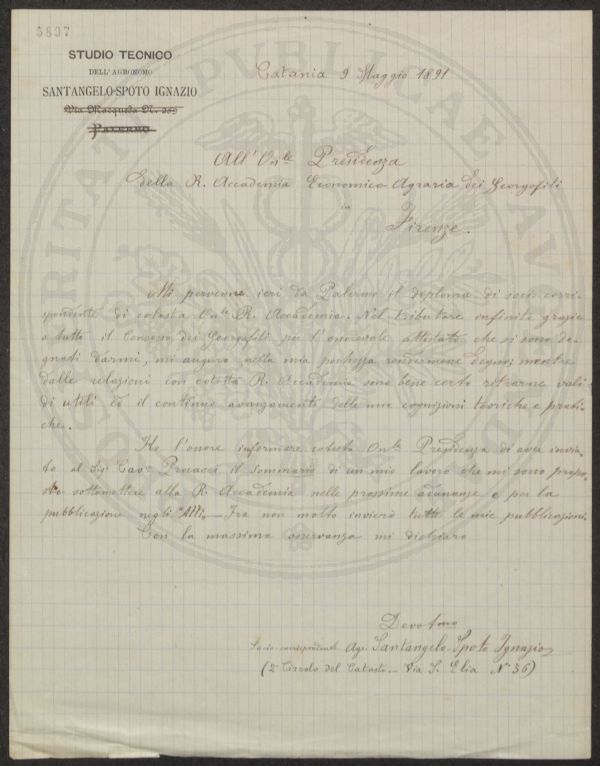 5897
STUDIO TECNICO
DELL'AGRONOMO
SANTANGELO-SPOTO IGNAZIO
Via Macqueda N.
PALERMO
Catania 9 Maggio 1891
All'On.le Presidenza
della R. Accademia Economico Agraria dei Georgofili
in
Firenze.
Mi pervenne ieri da Palermo il diploma di socio corri-
spondente di cotesta On.le R. Accademia. Nel tributare infinite grazie
a tutto il Consesso dei Georgofili per l'onorevole attestato che si sono de-
gnati darmi, mi auguro nella mia pochezza rendermene degno, mentre
dalle relazioni con cotesta R. Accademia sono bene certo ritrarne vali-
di utili ed il continuo avanzamento delle mie cognizioni teoriche e prati-
che.
Ho l'onore informare cotesta On.le Presidenza di aver invia-
to al Sig. Cav. Procacci il sommario di un mio lavoro che mi sono propo-
sto sottomettere alla R. Accademia nelle prossime adunanze e per la
pubblicazione negli "Atti„ — Fra non molto invierò tutte le mie pubblicazioni.
Con la massima osservanza mi dichiaro
Devotmo
Socio corrispondente Agr. Santangelo Spoto Ignazio
(2° Circolo del Catasto — Via S. Elia N° 36)